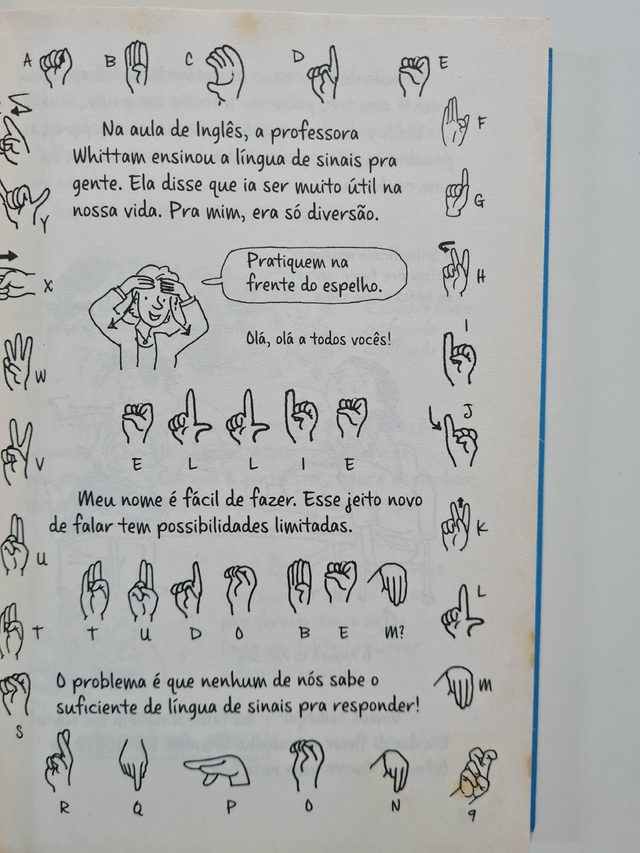 A B C D E
F
Na aula de Inglês, a professora
Whittam ensinou a língua de sinais pra
gente. Ela disse que ia ser muito útil na
nossa vida. Pra mim, era só diversão.
G
Y
H
X
Pratiquem na
frente do espelho.
Olá, olá a todos vocês!
I
W
J
E L L I E
V
Meu nome é fácil de fazer. Esse jeito novo
de falar tem possibilidades limitadas.
K
U
L
T
T U D O B E M?
O problema é que nenhum de nós sabe o
suficiente de língua de sinais pra responder!
M
S
R Q P O N 9